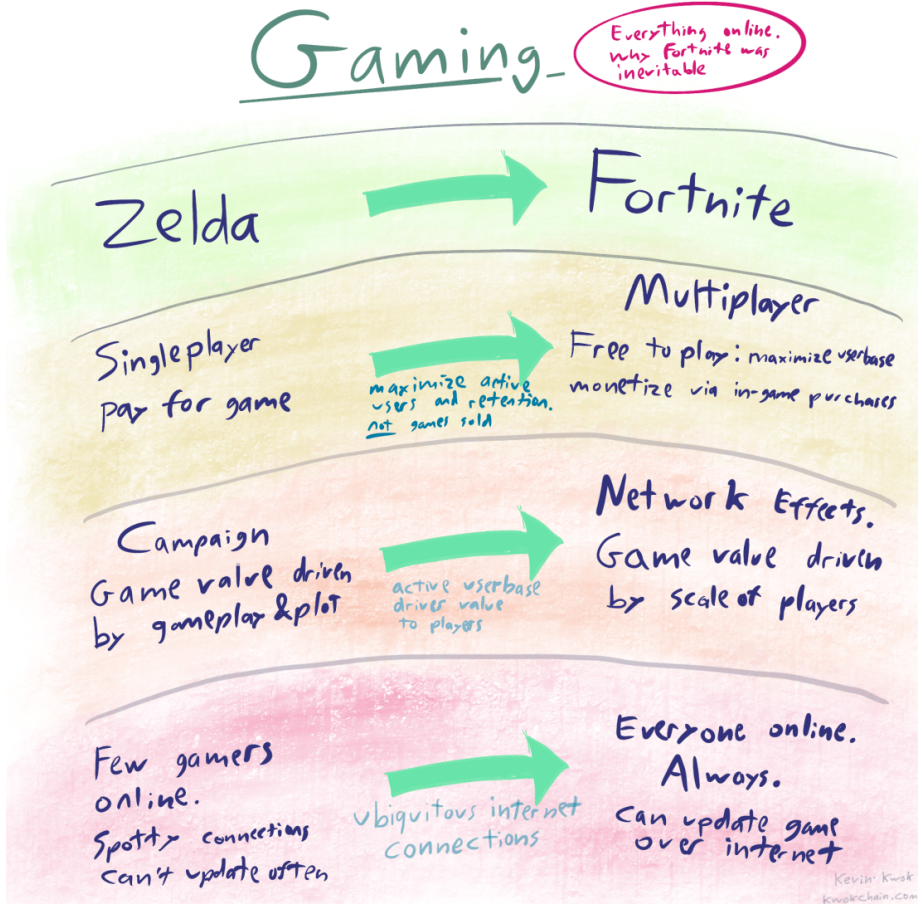 Gaming
Everything online.
Why Fortnite was
inevitable
Zelda
Fortnite
Singleplayer
pay for game
maximize active
users and retention.
not games sold
Multiplayer
Free to play: maximize userbase
monetize via in-game purchases
Campaign
Game value driven
by gameplay & plot
active userbase
driver value
to players
Network Effects.
Game value driven
by scale of players
Few gamers
online.
Spotty connections
can't update often
ubiquitous internet
connections
Everyone online.
Always.
can update game
over internet
Kevin Kwok
kwokchain.com